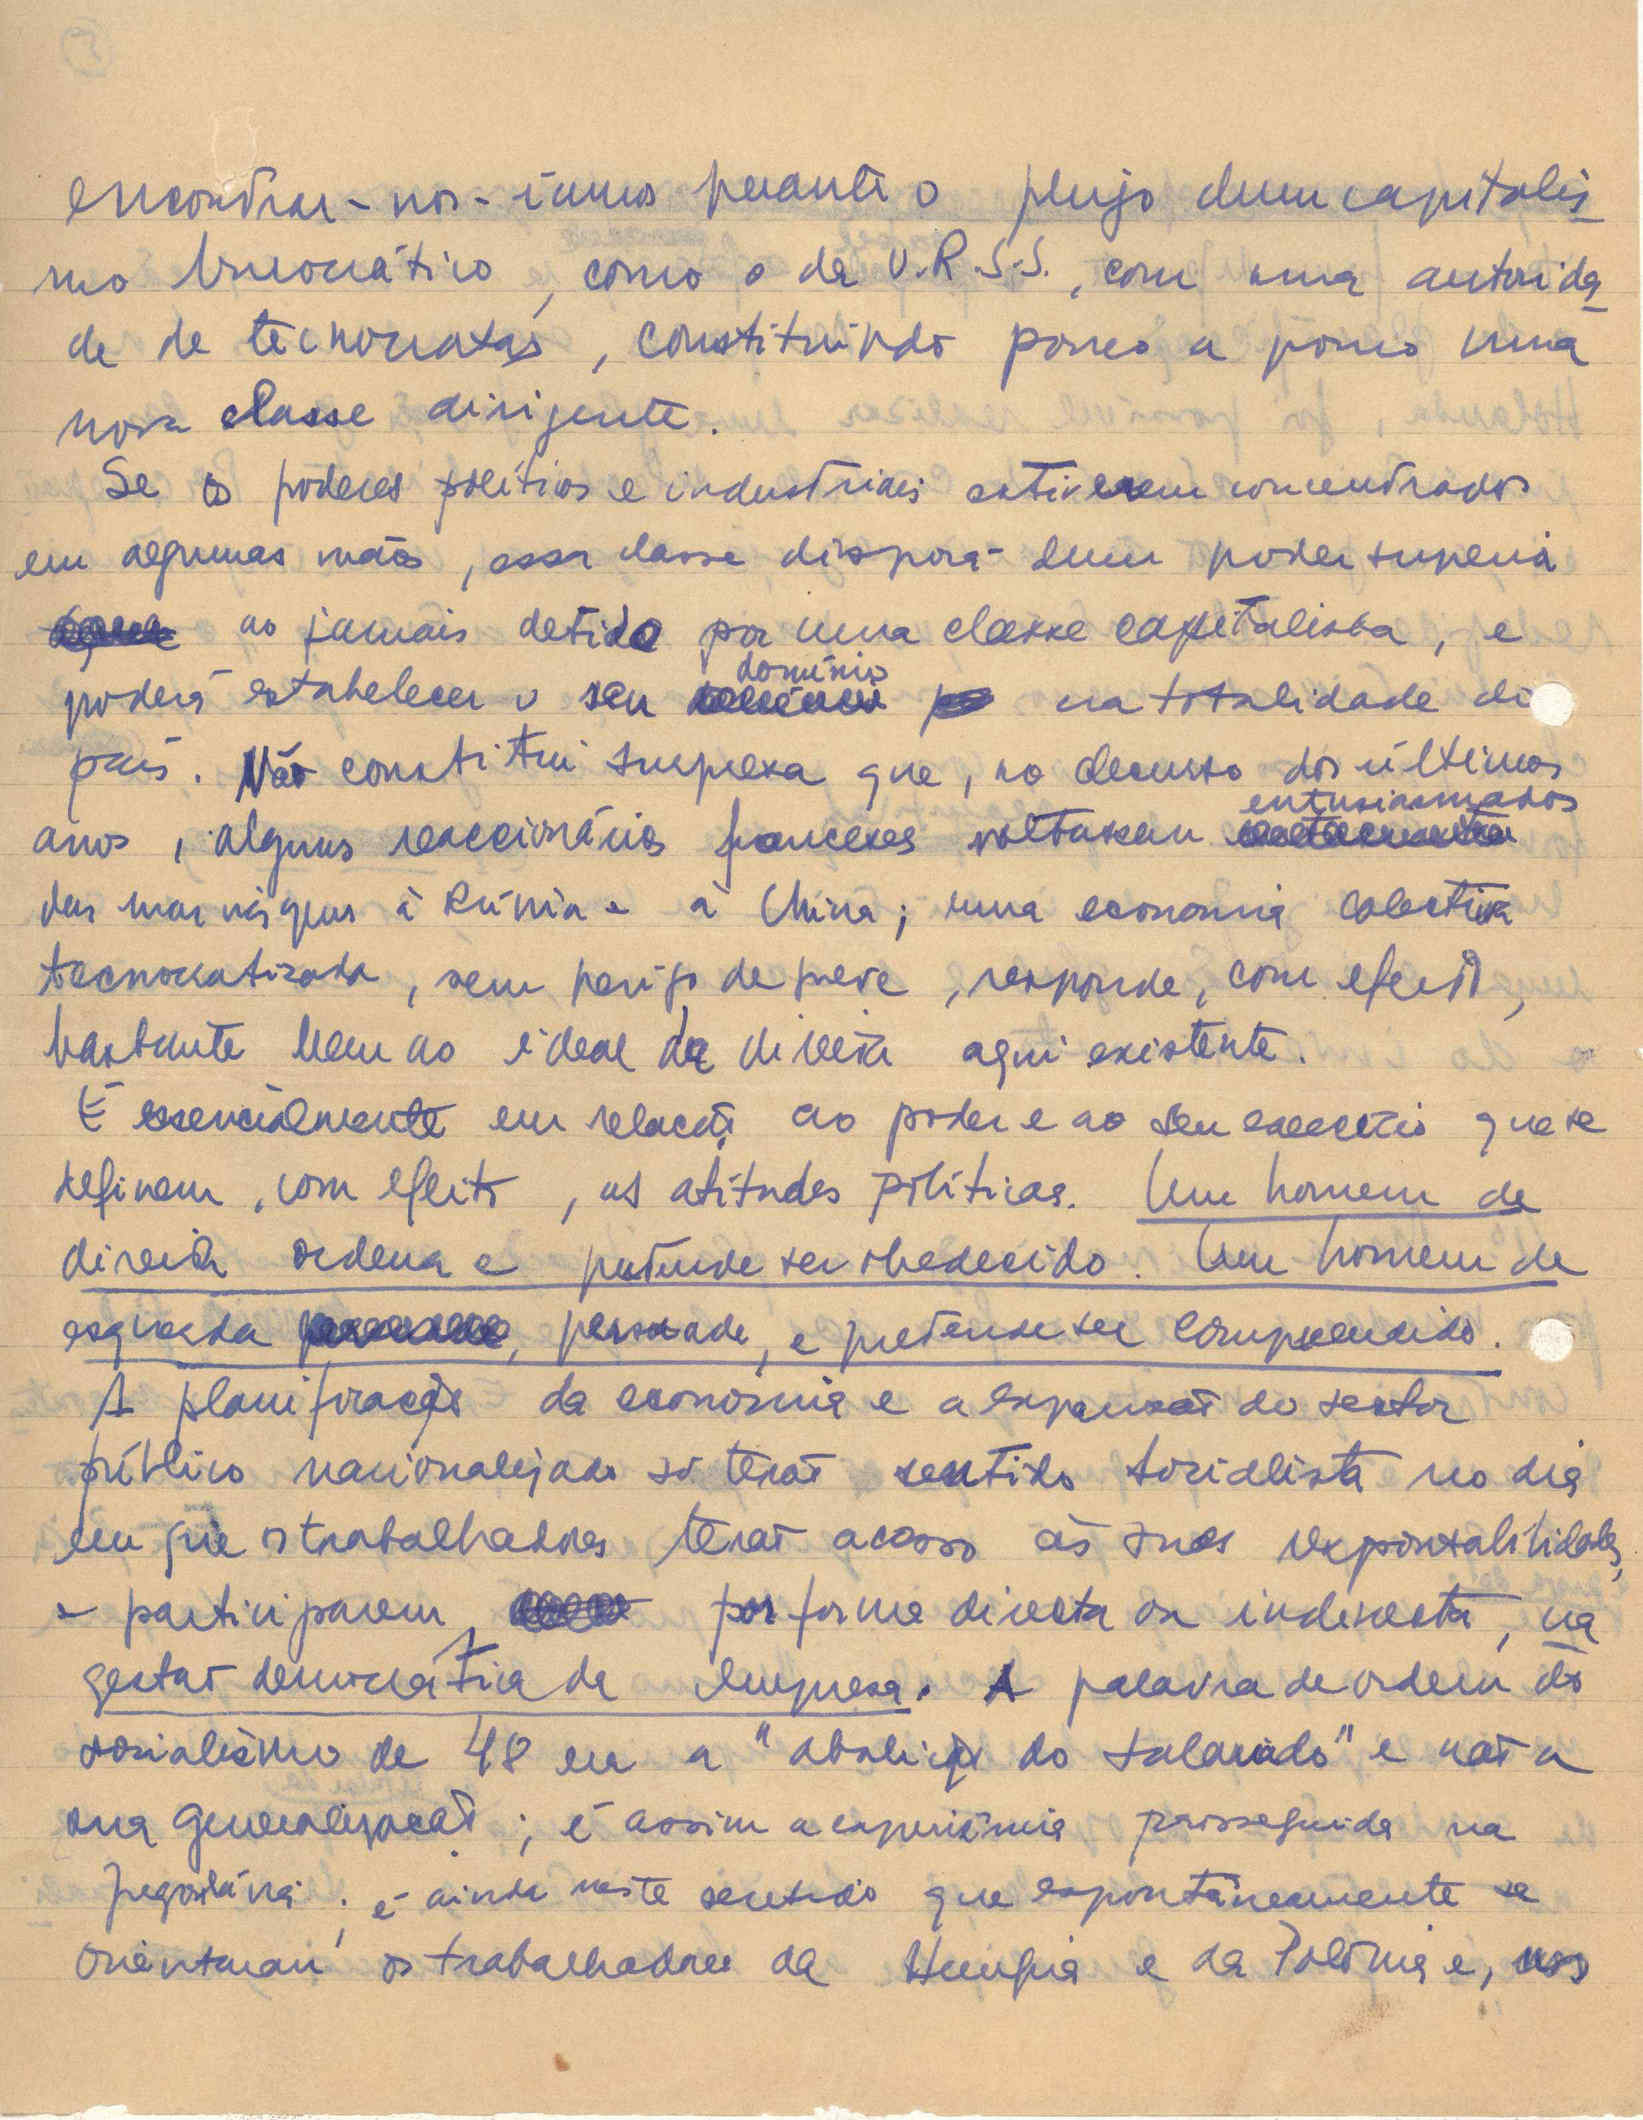 encontrar-nos-íamos perante o perigo dum capitalis
mo burocrático, como o da U.R.S.S., com uma autorida
de de tecnocratas, constituindo pouco a pouco uma
nova classe dirigente.
Se os poderes políticos e industriais estiverem concentrados
em algumas mãos, essa classe disporá dum poder superior
ao jamais detido por uma classe capitalista, e
poderá estabelecer o seu domínio na totalidade do
país. Não constitui surpresa que, no decurso dos últimos
anos, alguns reaccionários franceses voltassem entusiasmados
das suas viagens à Rússia e à China; uma economia colectiva
tecnocratizada, sem perigo de greve, responde, com efeito,
bastante bem ao ideal da direita aqui existente.
É essencialmente em relação ao poder e ao seu exercício que se
definem, com efeito, as atitudes políticas. Um homem de
direita ordena e pretende ser obedecido. Um homem de
esquerda persuade, e pretende ser compreendido.
A planificação da economia e a expansão do sector
público nacionalizado só terão sentido socialista no dia
em que os trabalhadores terão acesso às suas responsabilidades,
e participarem, por forma directa ou indirecta, na
gestão democrática da empresa. A palavra de ordem do
socialismo de 48 era a "abolição do salariado" e não a
sua generalização; é assim a experiência prosseguida na
Jugoslávia; é ainda neste sentido que espontâneamente se
orientaram os trabalhadores da Hungria e da Polónia e, nos